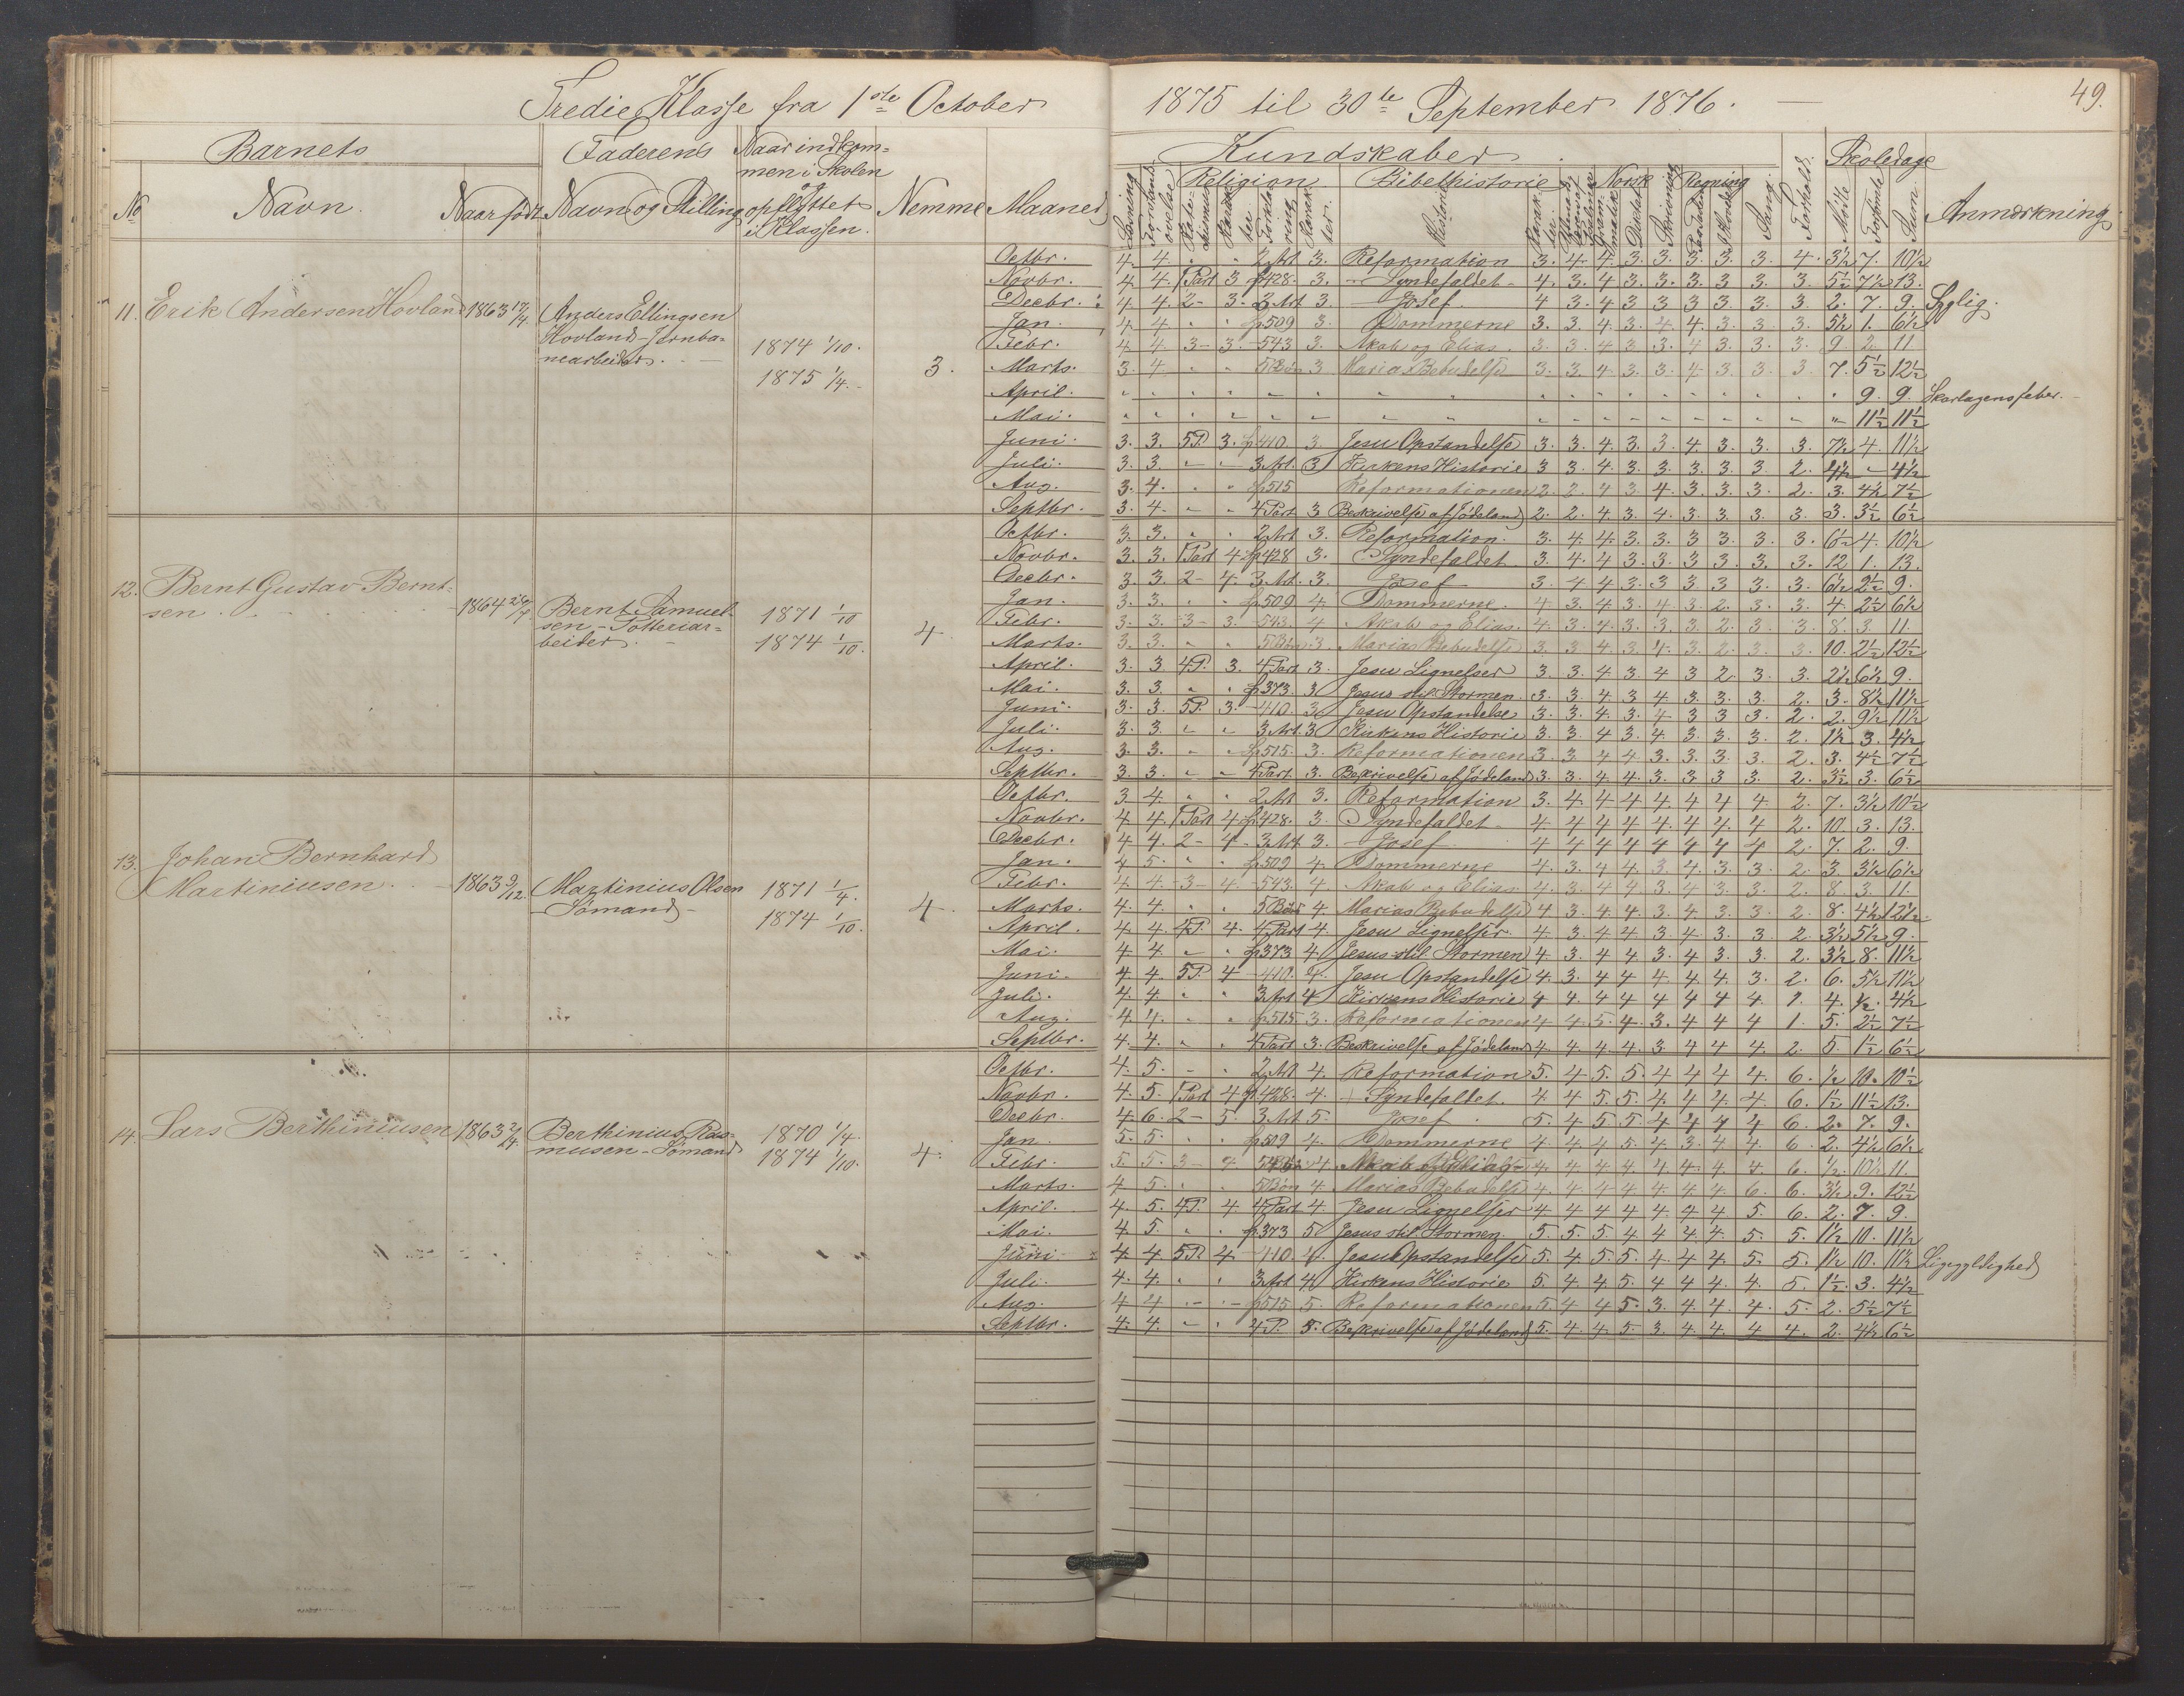 Tredie Klasse fra 1ste October 1875 til 30te September 1876. 49.
Barnets Faderens Naar indkommen i Skolen og opflyttet i Klassen. Kundskaber Skoledage
No Navn. Naar født Navn og Stilling Nemme Maaned Religion Bibelhistorie Norsk Regning Sang. Forhold. Mødte Forsømte Sum. Anmærkning
11. Erik Andersen Hovland 1863 17/4. Anders Ellingsen Hovland - Jernbanearbeider. 1874 1/10. 1875 1/4. 3.
Octbr. 4. 4. " " 2 Art 3. Reformation 3. 4. 4. 3. 3. 3. 3. 3. 4. 3½ 7. 10½
Novbr. 4. 4. 1 Part 3 p428. 3. Syndefaldet 4. 3. 4 3. 3. 3. 3 3. 3. 5½ 7½ 13.
Decbr. 4 4. 2 - 3. 3 Art 3. Josef 4 3. 4 3 3 3 3 3. 3. 2. 7. 9. Syglig.
Jan. 4. 4 " " p509 3. Dommerne 3. 3. 4. 3. 4. 4. 3. 3. 3. 5½ 1. 6½
Febr. 4 4. 3 - 3. - 543 3. Akab og Elias. 3. 3. 4 3. 3. 4 3. 3. 3. 9 2 11
Marts. 3. 4. " " 5 Bøn 3 Marias Bebudelse 3. 3. 4 3. 3. 4 3. 3 3. 7. 5½ 12½
April. " " " " " " " " " " " " " " " " " " 9. 9. Skarlagensfeber.
Mai. " " " " " " " " " " " " " " " " " " 11½ 11½
Juni. 3. 3. 5P. 3. p410. 3. Jesu Opstandelse 3. 3. 4. 3. 3. 4. 3. 3. 3. 7½ 4. 11½
Juli. 3. 3. " " 3 Art. 3 Kirkens Historie 3 3. 4. 3. 3. 3. 3. 3 2. 4½ " 4½
Aug. 3. 4. " " p515 Reformationen 2. 2. 4 3. 4. 3. 3. 3. 2. 3. 4½ 7½
Septbr. 3. 4. " " 4 Part 3 Beskrivelse af Jødeland 2. 2. 4 3. 4. 3. 3. 3. 3. 3. 3½ 6½
12. Bernt Gustav Berntsen. 1864 Bernt Samuelsen - Potteriarbeider. 1871 1/10 1874 1/10. 4
Octbr. 3. 3. " " 2 Art 3. Reformation. 3. 4. 4. 3. 3. 3 3. 3. 3. 6½ 4. 10½
Novbr. 3. 3. 1 Part 4 p428 3. Syndefaldet 3. 4. 4 3. 3. 3 3. 3. 3. 12 1. 13.
Decbr. 3. 3. 2 - 4. 3 Art. 3. Josef 3. 4 4 3. 3 3 3 3. 3. 6½ 2½ 9.
Jan. 3. 3. " " p509 4. Dommerne. 4 3. 4 3. 4. 3. 2. 3. 3. 4. 2½ 6½
Febr. 3. 3. - 3 - 3. - 543. 4 Akab og Elias. 4. 3. 4. 3. 3. 3. 2. 3 3. 8. 3. 11.
Marts. 3. 3. " " 5 Bøn 3 Marias Bebudelse 3. 3 4. 3. 4. 3. 2. 3 3. 10. 2½ 12½
April. 3. 3 4P. 3. 4 Part 3. Jesu Lignelser 3. 3. 4 3. 4 3 2. 3. 3. 2½ 6½ 9.
Mai. 3. 3. " " p373. 3 Jesus stil. Stormen. 3. 3. 4 3. 4 3. 3. 3. 2. 3. 8½ 11½
Juni. 3. 3. 5P. 3. - 410. 3. Jesu Opstandelse 3. 3. 4. 3. 4 3 3 3. 2. 2. 9½ 11½
Juli. 3. 3. " " 3 Art. 3 Kirkens Historie 3. 3 4 3. 4. 3. 3. 3. 2. 1½ 3. 4½
Aug. 3. 3. " " p515. 3. Reformationen 3. 3. 4 4 3. 3. 3. 3. 2. 3. 4½ 7½
Septbr. 3. 3. " " 4 Part. 3. Beskrivelse af Jødeland 3. 3. 4 4. 3. 3 3 3. 2. 3½ 3. 6½
13. Johan Bernhard Martiniusen. 1863 9/12. Martinius Olsen - Sømand - 1871 1/4. 1874 1/10. 4.
Octbr. 3 4. " " 2 Art 3. Reformation 3. 4. 4 4 4. 4 4 4. 2. 7. 3½ 10½
Novbr. 4 4. 1 Part 4 p428. 3. Syndefaldet 4. 4 4 4 4. 4 4. 4 2. 10. 3. 13.
Decbr. 4 4. 2 - 4 - 3 Art 3. Josef 4 4 4 4 4 4 4 4 2. 7. 2. 9.
Jan. 4 5. " " p509 4. Dommerne 4. 3. 4 4. 3. 4. 3. 3. 2. 3. 3½ 6½
Febr. 4. 4 - 3 - 4 - 543. 4. Akab og Elias 4. 3. 4 4 3. 4 3. 3. 2. 8 3. 11.
Marts. 4. 4. " " 5 Bøn 4. Marias Bebudelse 4 3. 4. 4. 3. 4. 3. 3. 2. 8. 4½ 12½.
April. 4. 4. 4P. 4. 4 Part 4 Jesu Lignelser. 4 3. 4 4 3. 4. 3. 3 2. 3½ 5½ 9.
Mai. 4 4. " " p373 4 Jesus stil. Stormen 4. 3. 4 4 3. 4 3. 3. 2. 3½ 8. 11½
Juni. 4 4. 5P. 4 - 410. 4. Jesu Opstandelse 4. 3. 4 4 4. 4. 4. 3. 2. 6. 5½ 11½
Juli. 4. 4. " " 3 Art 4 Kirkens Historie 4 4. 4 4 4 4 4 4. 1. 4. ½. 4½
Aug. 4. 4. " " p515. 3. Reformationen 4 4. 5. 4. 3. 4 4 4 1. 5. 2½ 7½
Septbr. 4. 4. " " 4 Part 3. Beskrivelse af Jødeland 4. 4. 4. 4. 3. 4 4 4. 2. 5. 1½ 6½
14. Lars Berthiniusen 1863 Berthinius Rasmusen - Sømand 1870 1/4. 1874 1/10. 4.
Octbr. 4. 5. " " 2 Art 4. Reformation 5. 4 5. 5. 4 4 4 4. 6. ½ 10. 10½
Novbr. 4. 5. 1 Part 4 p428. 4. Syndefaldet. 4 4 5 5 4 4 4. 4 6. 1½ 11½ 13.
Decbr. 4 6. 2 - 5. 3 Art 5. Josef 5. 4 5 5 4 4 4 4 6. 2. 7. 9.
Jan. 5. 5. " " p509 4. Dommerne 4 4 4 5. 4. 3. 4 4 6. 2. 4½ 6½
Febr. 5. 5. 3 - 4 4. Akab og Elias 4. 4 4 4. 4. 4. 4 4. 6. ½. 10½ 11.
Marts. 4 5. " " 5 Bøn 4. Marias Bebudelse 4. 4 4 4. 4. 4. 4. 6. 6. 3½ 9. 12½
April. 4. 5. 4P. 4 4 Part 4. Jesu Lignelser 4 4 4 4 4. 4 4 5. 6. 2. 7. 9.
Mai. 4 5. " " p373 5 Jesus stil. Stormen 5. 5. 5 4 4. 4. 4. 5. 5. 1½ 10. 11½
Juni. 4 4 5P. 4. - 410. 4. Jesu Opstandelse 5. 4 5 5. 4. 4. 4. 5. 5. 1½ 10. 11½ Ligegyldighed
Juli. 4. 4. " " 3 Art 4. Kirkens Historie 5. 4. 4 5. 4 4 4. 4. 5. 1½. 3. 4½
Aug. 4 4 " " p515 5. Reformationen 5 4 4 5. 3. 4. 4. 4. 5. 2. 5½ 7½
Septbr. 4. 4. " " 4P. 5. Beskrivelse af Jødeland 5. 4. 4. 5 3. 4 4. 4 4. 2. 4½ 6½